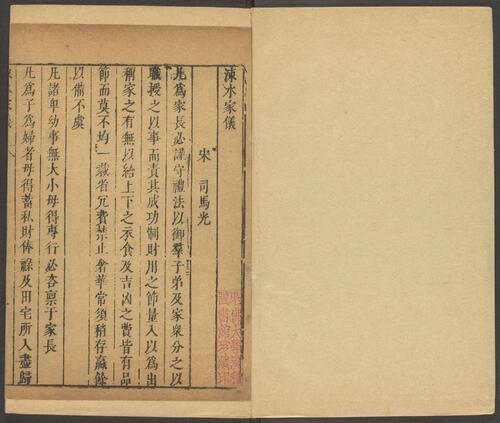 涑水家儀
宋 司馬光
凡為家長必謹守禮法以御羣子弟及家衆分之以
職授之以事而責其成功制財用之節量入以為出
稱家之有無以給上下之衣食及吉凶之費皆有品
節而莫不均一裁省冗費禁止奢華常須稍存贏餘
以備不虞
凡諸卑幼事無大小毋得專行必咨稟于家長
凡為子為婦者毋得蓄私財俸祿及田宅所入盡歸